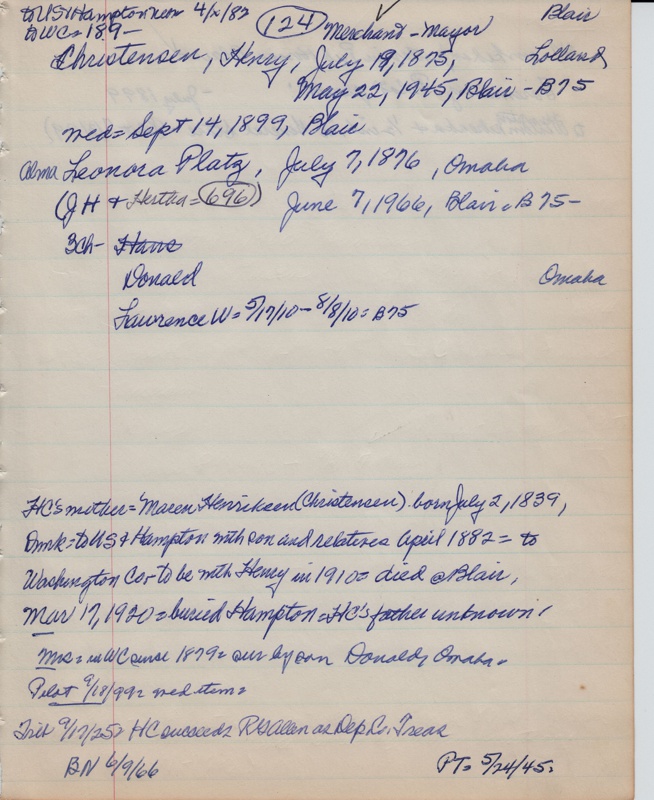 to US & Hampton Neb 4/2/82 (124) Blair
to WC = 189- Merchant - Mayor
Christensen, Henry, July 19, 1875, Lolland
May 22, 1945, Blair - B75
wed = Sept 14, 1899, Blair
Alma Leonora Platz, July 7, 1876, Omaha
(JH & Hertha = 696) June 7, 1966, Blair = B75 -
3ch - Hans
Donald Omaha
Lawrence W = 5/17/10 - 8/8/10 = B75
HC's mother = Maren Henriksen (Christensen) born July 2, 1839,
Dmk = to US & Hampton with son and relatives April 1882 = to
Washington Co = to be with Henry in 1910 = died @ Blair,
Mar 17, 1920 = buried Hampton = HC's father unknown!
Mrs = in WC since 1879 = sur by son Donald, Omaha =
Pilot 9/18/99 = wed item =
Trib 9/17/25 = HC succeeds R Allen as Dep Co. Treas
BN 6/9/66 PT = 5/24/45 =